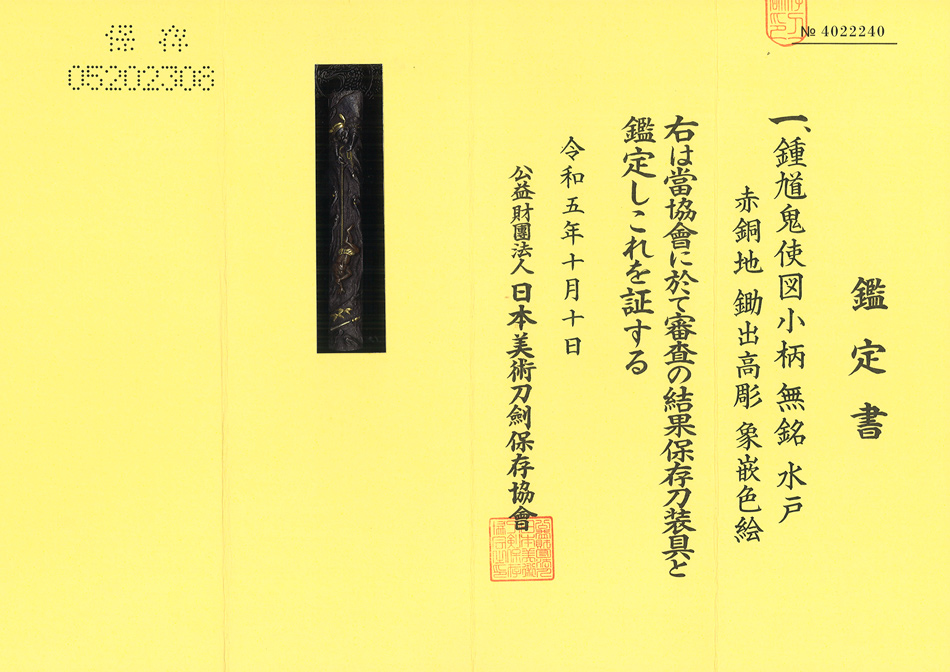 № 4022240
鑑定書
一、鍾馗鬼使図小柄 無銘 水戸
赤銅地 鋤出高彫 象嵌色絵
右は當協會に於て審査の結果保存刀装具と
鑑定しこれを証する
令和五年十月十日
公益財團法人 日本美術刀劍保存協會
保存
05202308